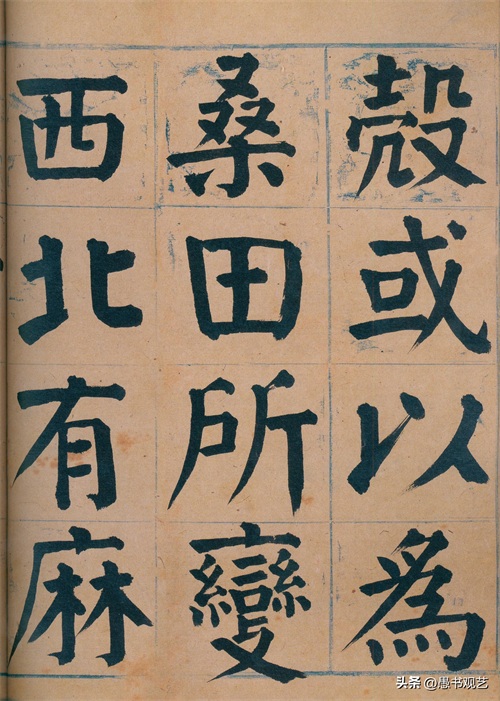 殻或以為
桑田所變
西北有麻
头条 @愚书观艺